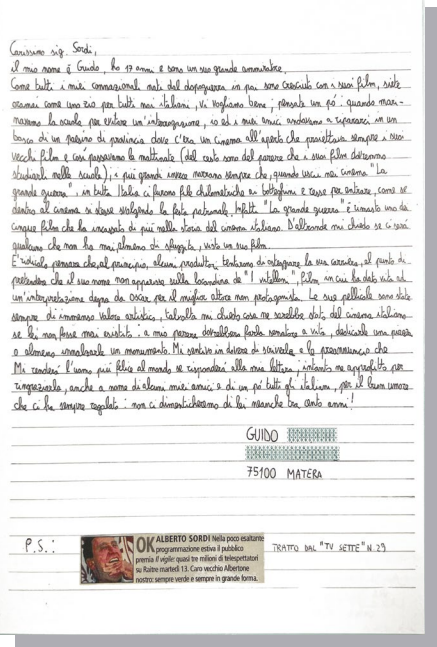 Carissimo sig. Sordi,
il mio nome è Guido, ho 17 anni e sono un suo grande ammiratore.
Come tutti i miei connazionali nati dal dopoguerra in poi sono cresciuto con i suoi film, siete
oramai come uno zio per tutti noi italiani, Vi vogliamo bene; pensate un pò: quando mari-
navamo la scuola per evitare un'interrogazione, io ed i miei amici andavamo a ripararci in un
bosco di un paesino di provincia dove c'era un cinema all'aperto che proiettava sempre i suoi
vecchi film e così passavamo la mattinata (del resto sono del parere che i suoi film dovremmo
studiarli nelle scuole); i più grandi invece narrano sempre che, quando uscì nei cinema "La
grande guerra", in tutta Italia ci furono file chilometriche ai botteghini e resse per entrare, come se
dentro al cinema si stesse svolgendo la festa patronale. Infatti "La grande guerra" è rimasto uno dei
cinque film che ha incassato di più nella storia del cinema italiano. D'altronde mi chiedo se ci sarà
qualcuno che non ha mai, almeno di sfuggita, visto un suo film.
E' ridicolo pensare che, al principio, alcuni produttori tentarono di osteggiare la sua carriera, al punto di
pretendere che il suo nome non apparisse sulla locandina de "I vitelloni", film in cui ha dato vita ad
un'interpretazione degna da oscar per il miglior attore non protagonista. Le sue pellicole sono state
sempre di immenso valore artistico, talvolta mi chiedo cosa ne sarebbe stato del cinema italiano
se lei non fosse mai esistito: a mio parere dovrebbero farla senatore a vita, dedicarle una piazza
o almeno innalzarle un monumento. Mi sentivo in dovere di scriverle e le preannuncio che
Mi renderà l'uomo più felice al mondo se risponderà alla mia lettera, intanto ne approfitto per
ringraziarla, anche a nome di alcuni miei amici e di un pò tutti gli italiani, per il buon umore
che ci ha sempre regalato: non ci dimenticheremo di lei neanche tra cento anni!
GUIDO
75100 MATERA
P.S.:
OK ALBERTO SORDI Nella poco esaltante
programmazione estiva il pubblico
premia Il vigile: quasi tre milioni di telespettatori
su Raitre martedì 13. Caro vecchio Albertone
nostro: sempre verde e sempre in grande forma.
TRATTO DAL "TV SETTE" N.29